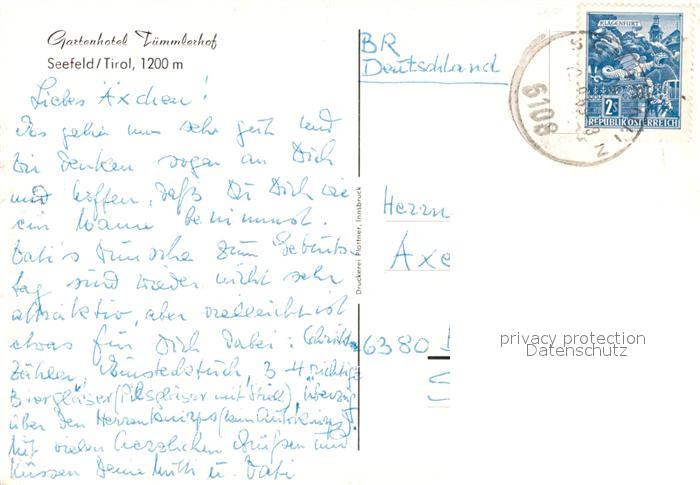 Gartenhotel Tümmlerhof
Seefeld/Tirol, 1200 m
Liebes Äxchen!
Uns geht's sehr gut und
wir denken sogar an Dich
und hoffen, daß Du Dich wie
ein Mann benimmst.
Vati's Wünsche zum Geburts-
tag sind wieder nicht sehr
attraktiv, aber vielleicht ist
etwas für Dich dabei:
Zählen, 3-4 richtige
Biergläser (Pilsgläser mit Stiel), Überzug
über den Herrenknirps (kein Autoknirps).
Mit vielen herzlichen Grüßen und
Küssen Deine Mutti u. Vati
Druckerei Plattner, Innsbruck
BR
Deutschland
Herrn
Axe
6380
KLAGENFURT
2S
REPUBLIK ÖSTERREICH
6108
privacy protection
Datenschutz